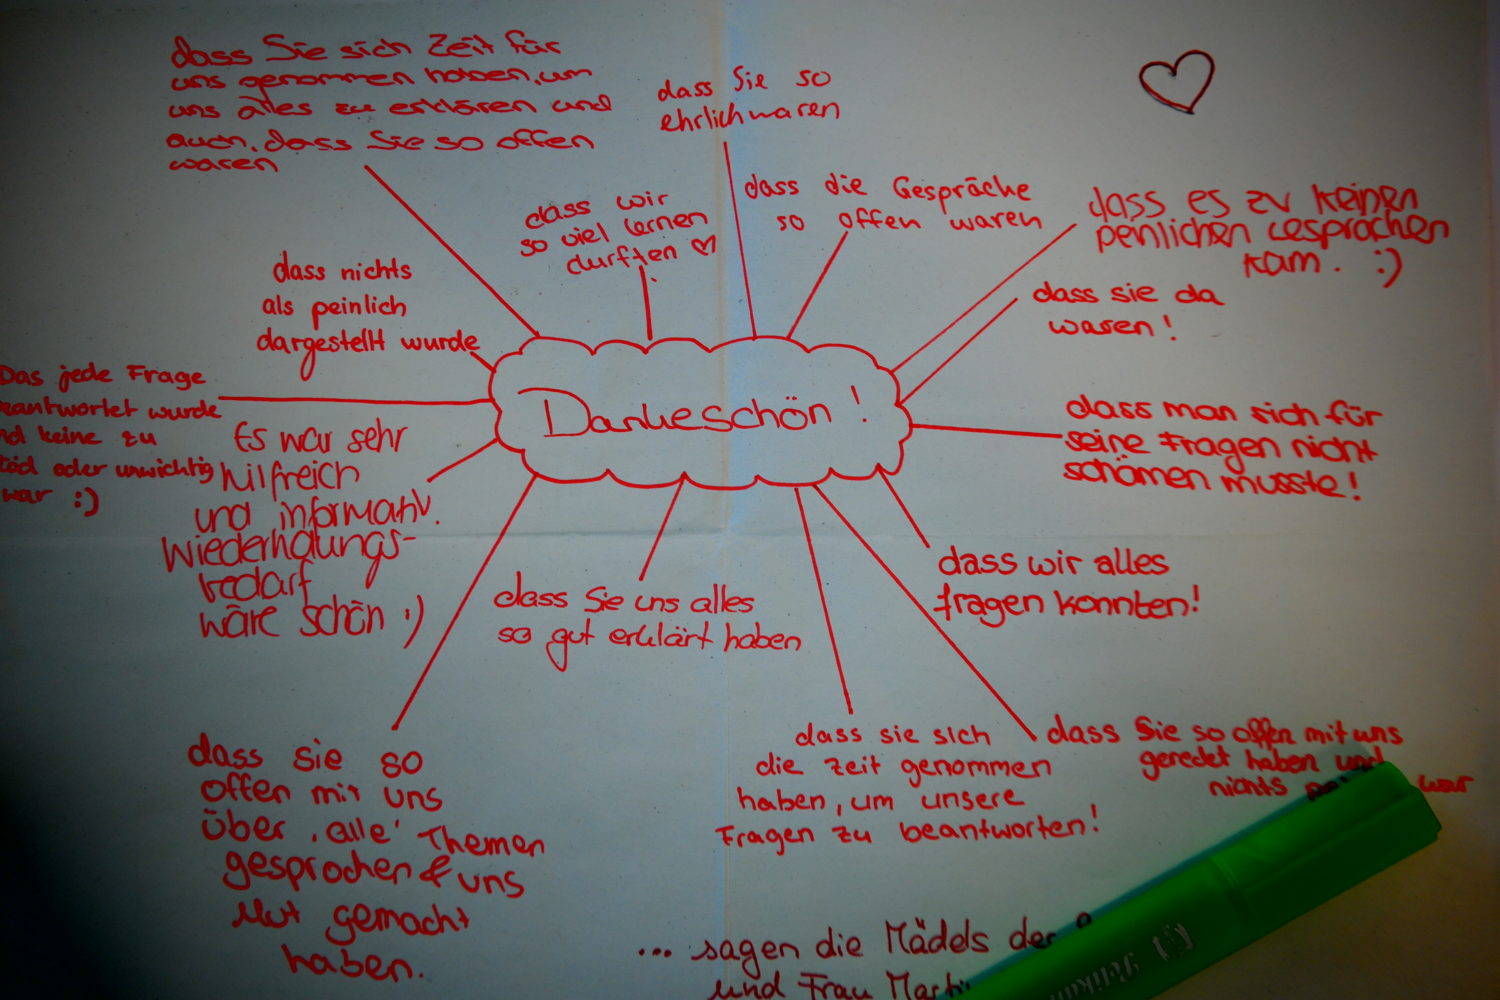 dass Sie sich Zeit für
uns genommen haben, um
uns alles zu erklären und
auch, dass Sie so offen
waren
dass Sie so
ehrlich waren
dass wir
so viel lernen
durften
dass die Gespräche
so offen waren
dass es zu keinen
peinlichen Gesprächen
kam. :)
dass nichts
als peinlich
dargestellt wurde
dass sie da
waren!
Das jede Frage
eantwortet wurde
nd keine zu
löd oder unwichtig
war :)
Dankeschön!
dass man sich für
seine Fragen nicht
schämen musste!
Es war sehr
hilfreich
und informativ.
Wiederholungs-
bedarf
wäre schön :)
dass Sie uns alles
so gut erklärt haben
dass wir alles
fragen konnten!
dass sie so
offen mit uns
über 'alle' Themen
gesprochen & uns
Mut gemacht
haben.
dass sie sich
die Zeit genommen
haben, um unsere
Fragen zu beantworten!
dass Sie so offen mit uns
geredet haben und
nichts war
... sagen die Mädels der
und Frau
Pelikan